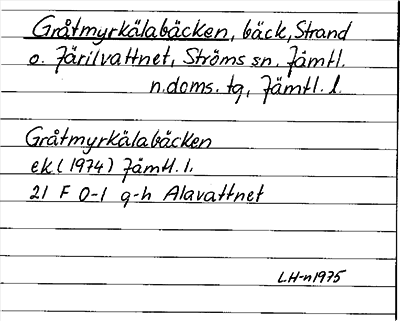 Gråtmyrkälabäcken, bäck, Strand
o. Järilvattnet, Ströms sn. Jämtl.
n.doms. tg, Jämtl. l.
Gråtmyrkälabäcken
ek. (1974) Jämtl. l.
21 F 0-1 g-h Alavattnet
LH-n 1975